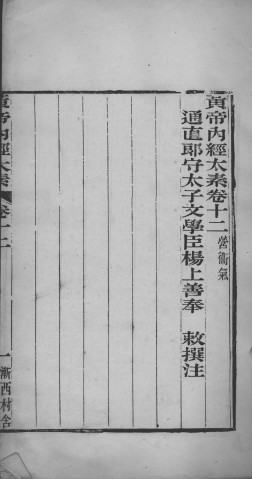 黃帝內經太素卷十二營衞氣
通直郎守太子文學臣楊上善奉 敕撰注
黃帝內經太素 卷十二 一 漸西村舍